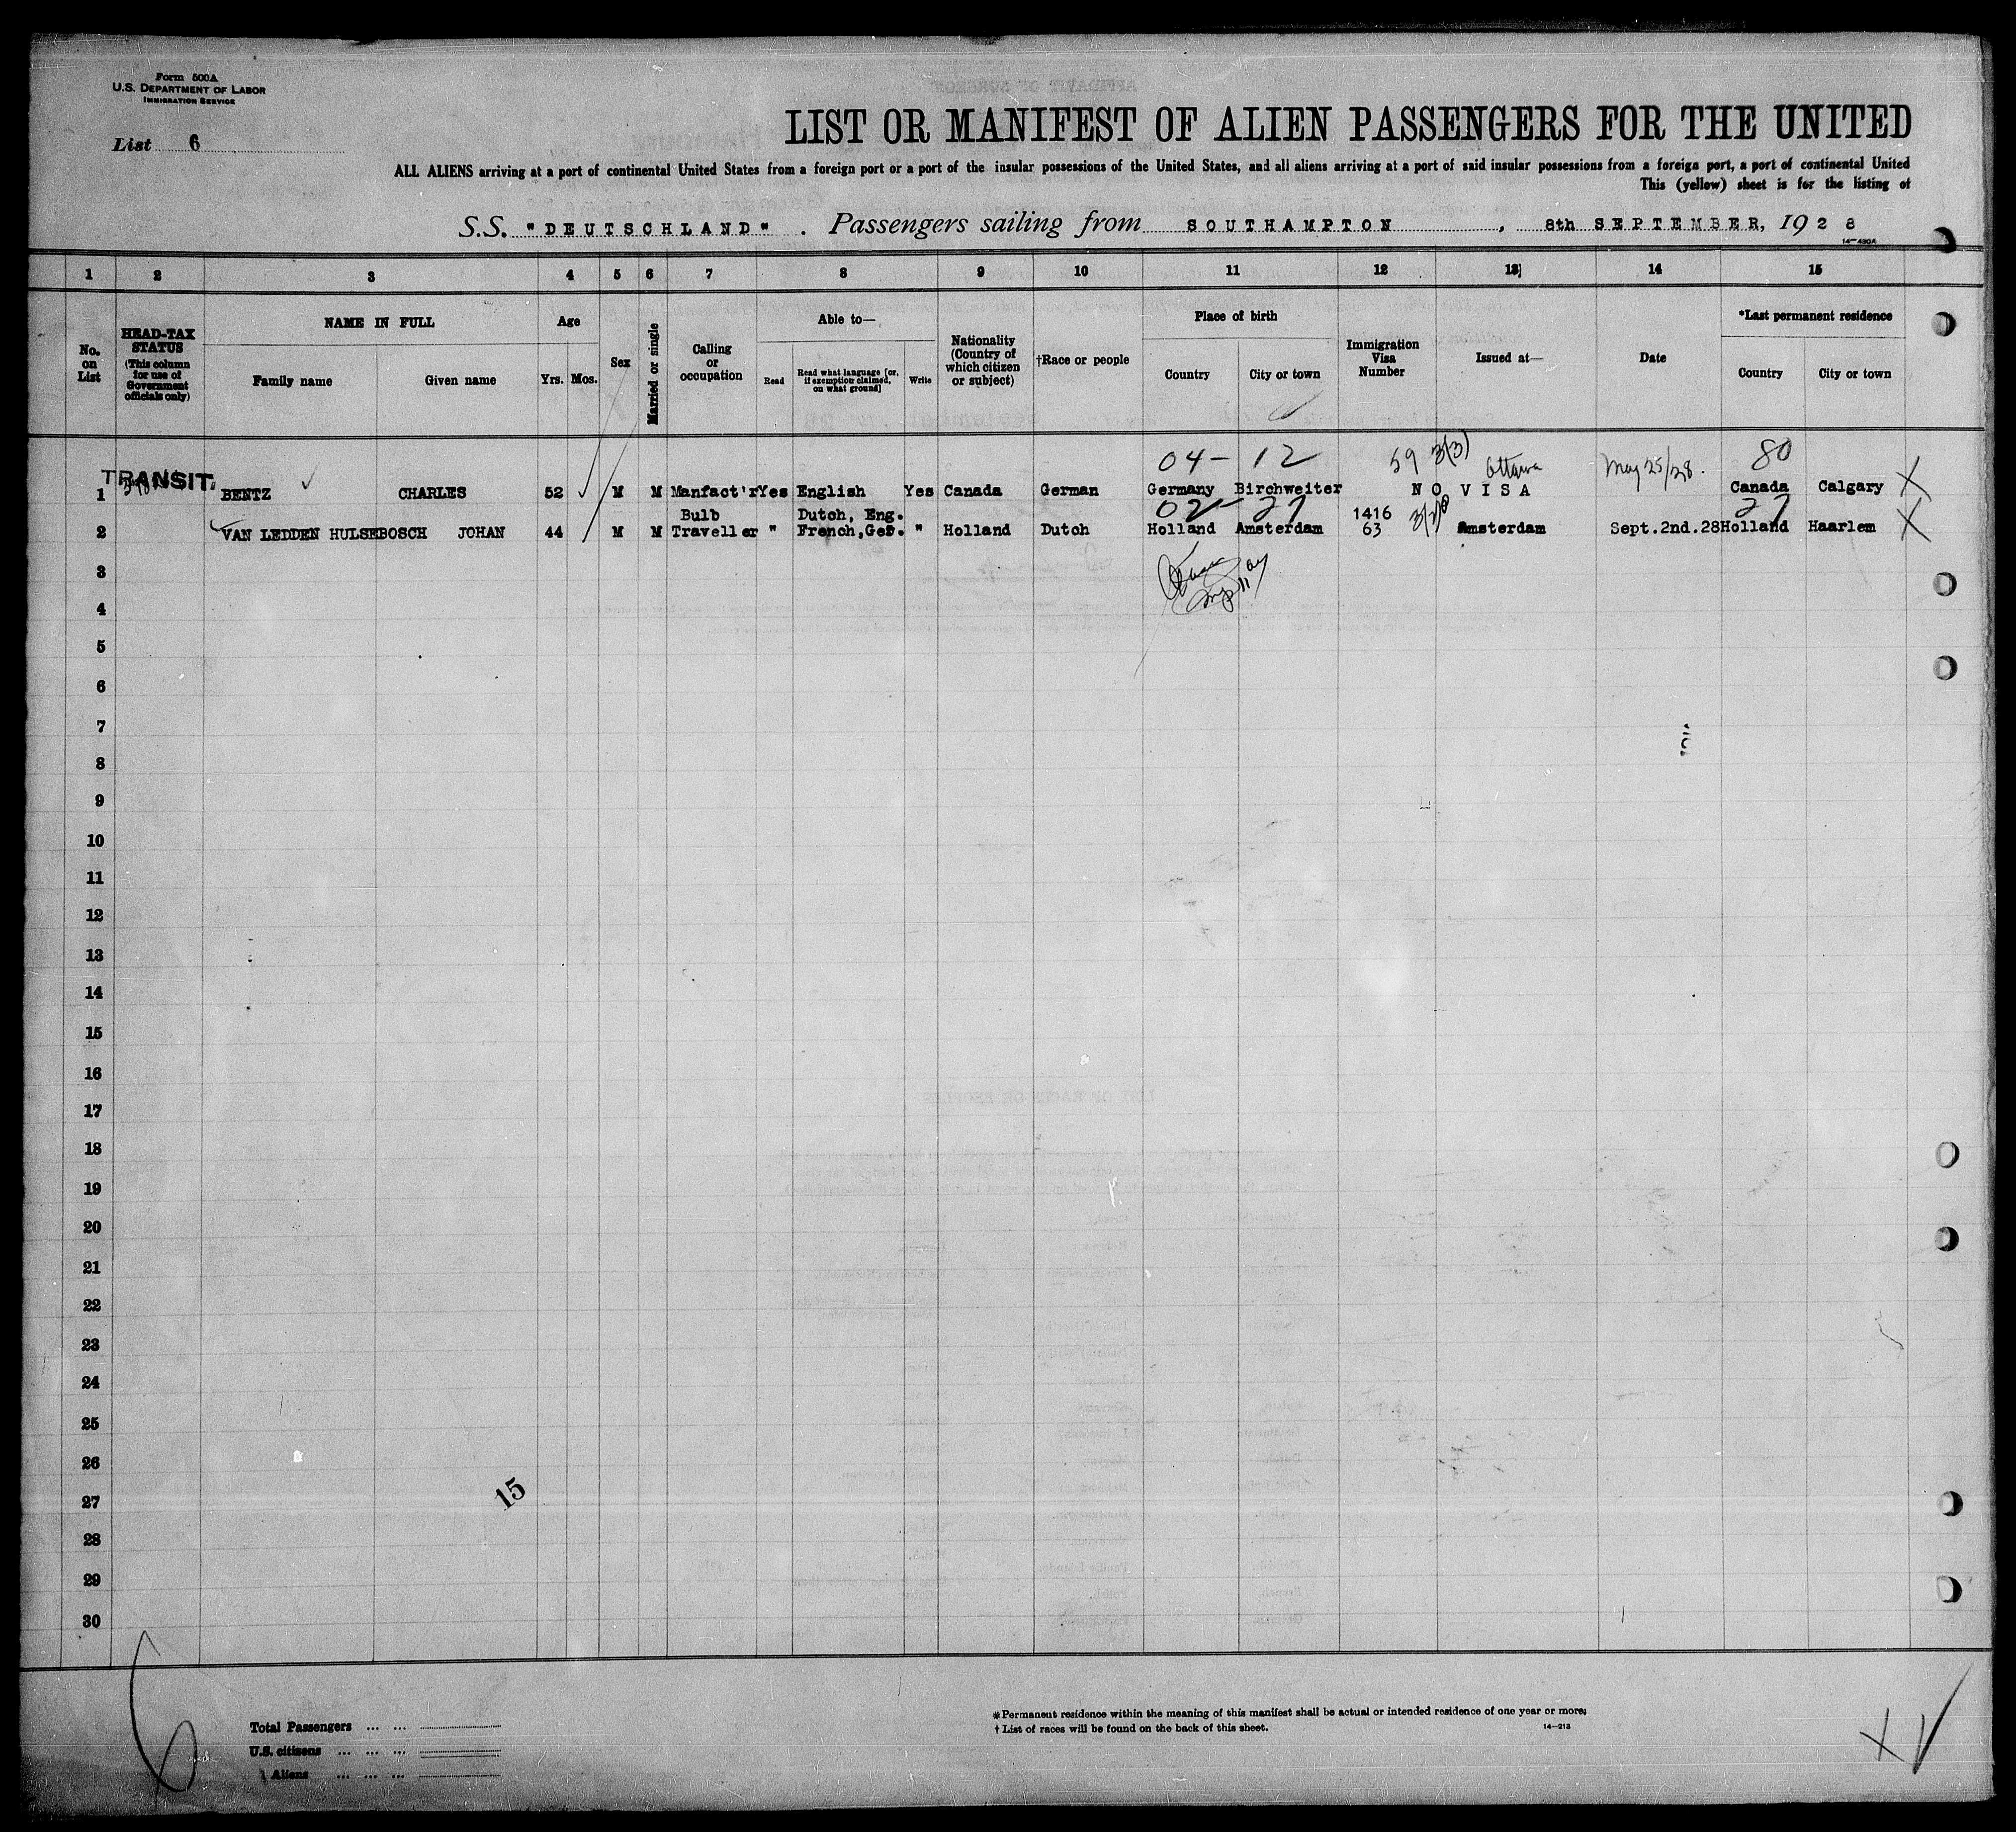 Form 500A
U.S. DEPARTMENT OF LABOR
IMMIGRATION SERVICE
List 6
LIST OR MANIFEST OF ALIEN PASSENGERS FOR THE UNITED
ALL ALIENS arriving at a port of continental United States from a foreign port or a port of the insular possessions of the United States, and all aliens arriving at a port of said insular possessions from a foreign port, a port of continental United
This (yellow) sheet is for the listing of
S.S. "DEUTSCHLAND". Passengers sailing from SOUTHAMPTON, 8th SEPTEMBER, 1928
14-430A
1 2 3 4 5 6 7 8 9 10 11 12 13 14 15
No. on List
HEAD-TAX STATUS
(This column for use of Government officials only)
NAME IN FULL
Family name Given name
Age
Yrs. Mos.
Sex
Married or single
Calling or occupation
Able to—
Read
Read what language [or, if exemption claimed, on what ground]
Write
Nationality (Country of which citizen or subject)
†Race or people
Place of birth
Country City or town
Immigration Visa Number
Issued at—
Date
*Last permanent residence
Country City or town
04- 12 59 3(3) Ottawa May 25/28. 80
TRANSIT
1 BENTZ CHARLES 52 M M Manfact'r Yes English Yes Canada German Germany Birchweiter NO VISA Canada Calgary X
Bulb Dutch, Eng. 02- 27 1416 27
2 VAN LEDDEN HULSEBOSCH JOHAN 44 M M Traveller " French, Ger. " Holland Dutch Holland Amsterdam 63 Amsterdam Sept.2nd.28 Holland Haarlem X
3
4
5
6
7
8
9
10
11
12
13
14
15
16
17
18
19
20
21
22
23
24
25
26
27
15
28
29
30
Total Passengers ... ...
U.S. citizens ... ... ...
Aliens ... ... ...
*Permanent residence within the meaning of this manifest shall be actual or intended residence of one year or more.
†List of races will be found on the back of this sheet.
14-213